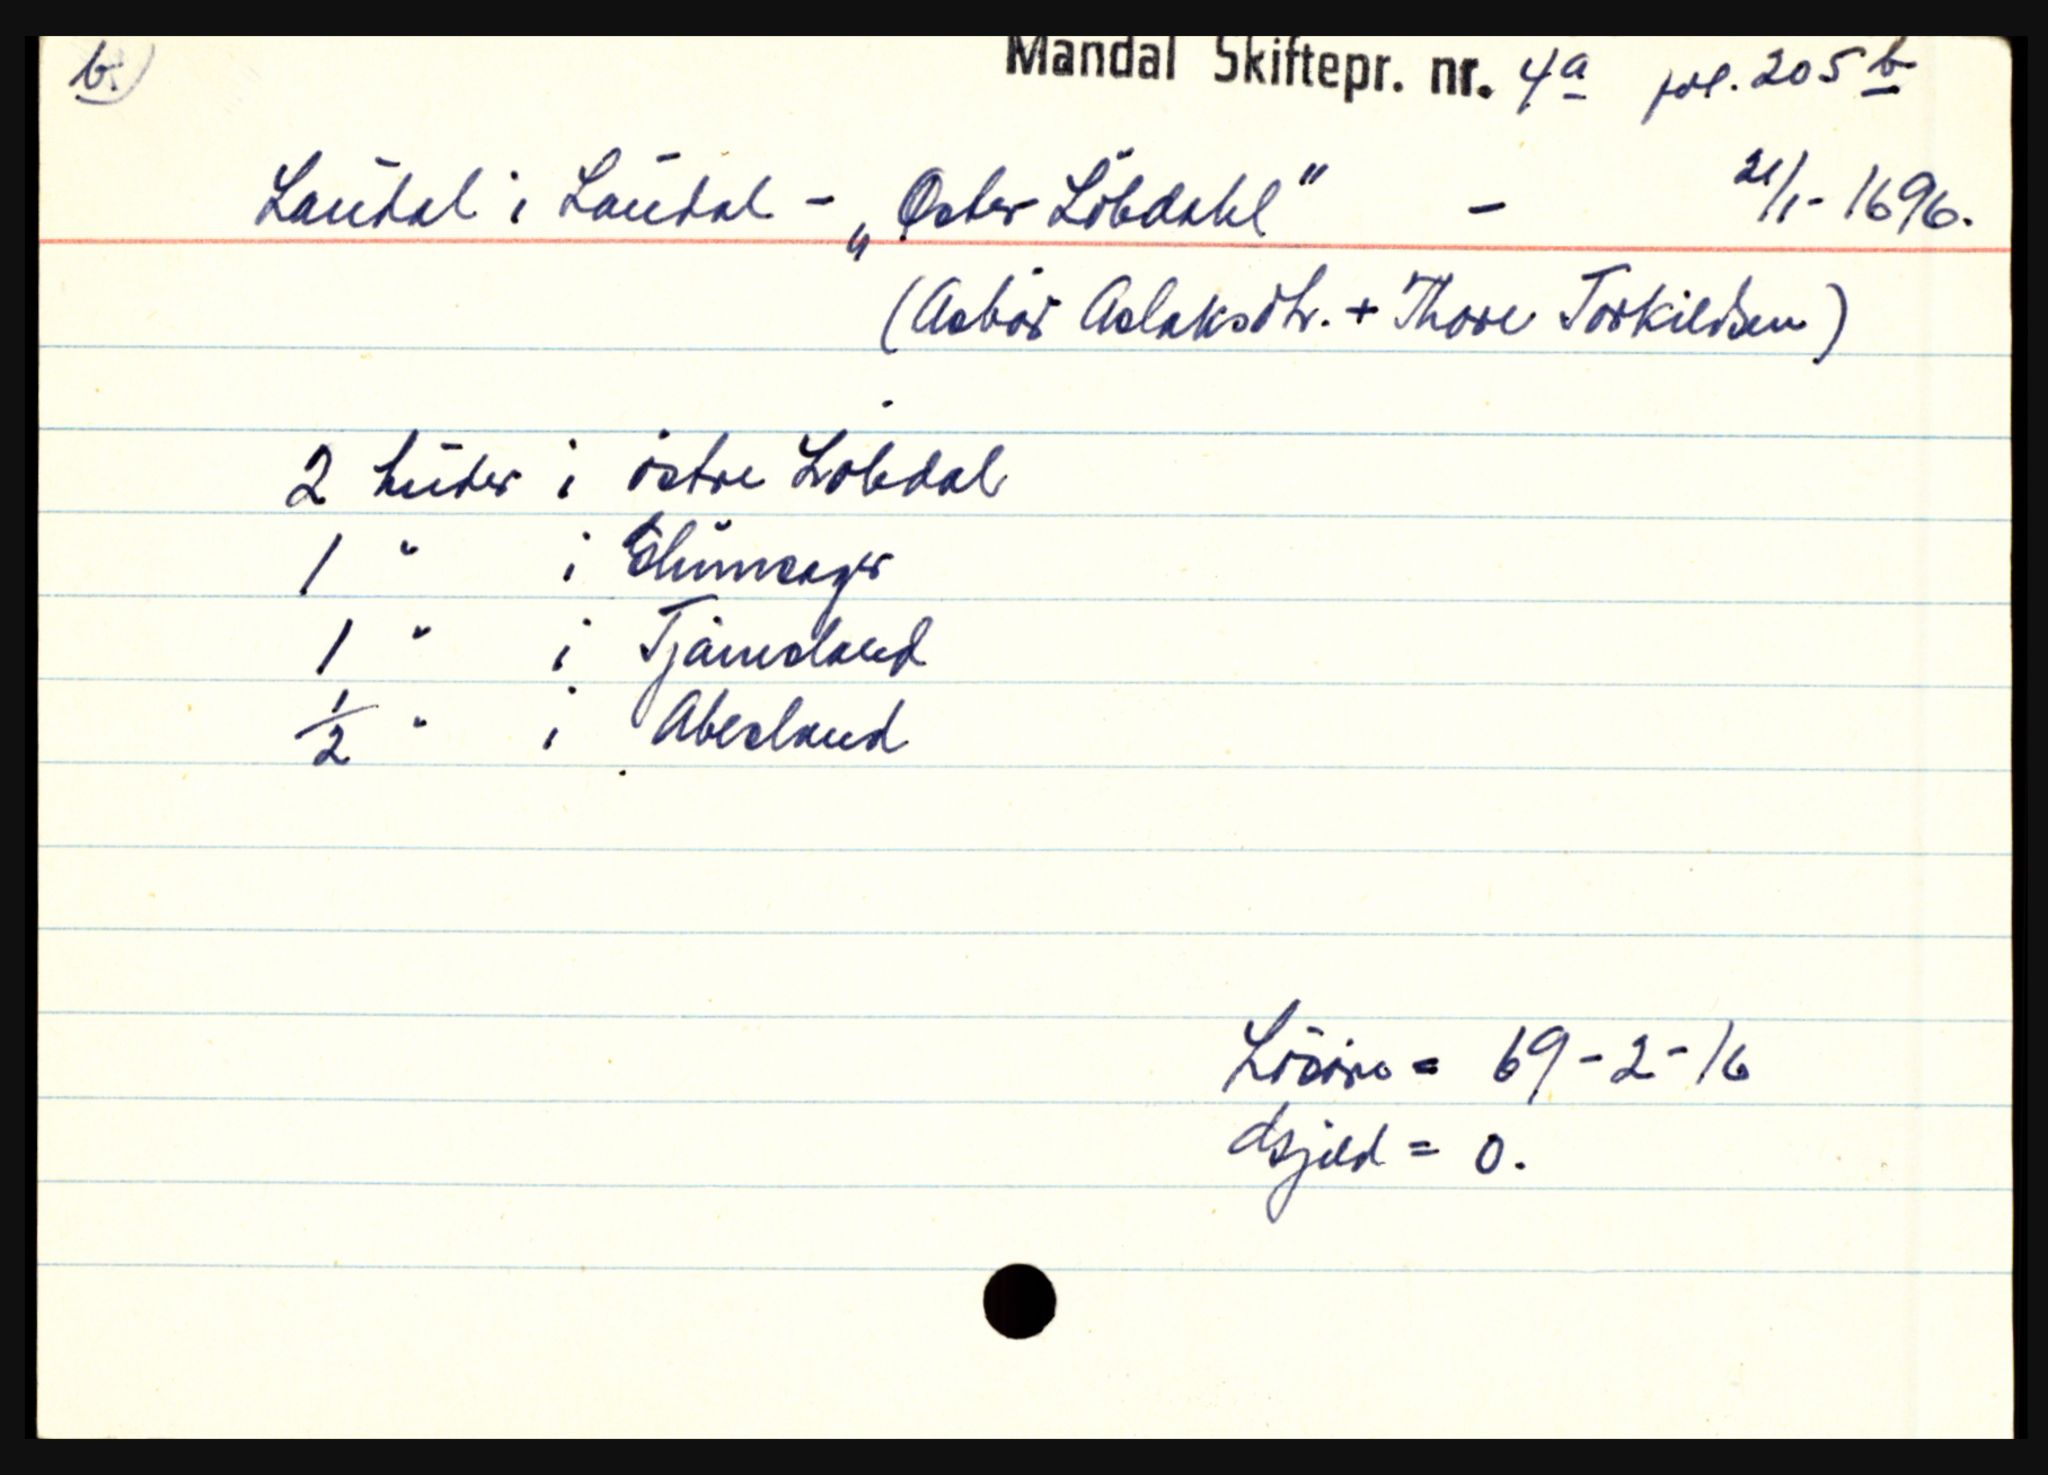 b.)
Mandal Skiftepr. nr. 4a fol. 205 b
Laudal i Laudal - „Öster Löbdahl" - 21/1-1696.
(Asbör Aslaksdtr. + Thore Torkildsen)
2 huder i östre Löbdal
1 " i
1 " i Tjamsland
1/2 " i Abesland
Lösöre = 69-2-16
dsjeld = 0.